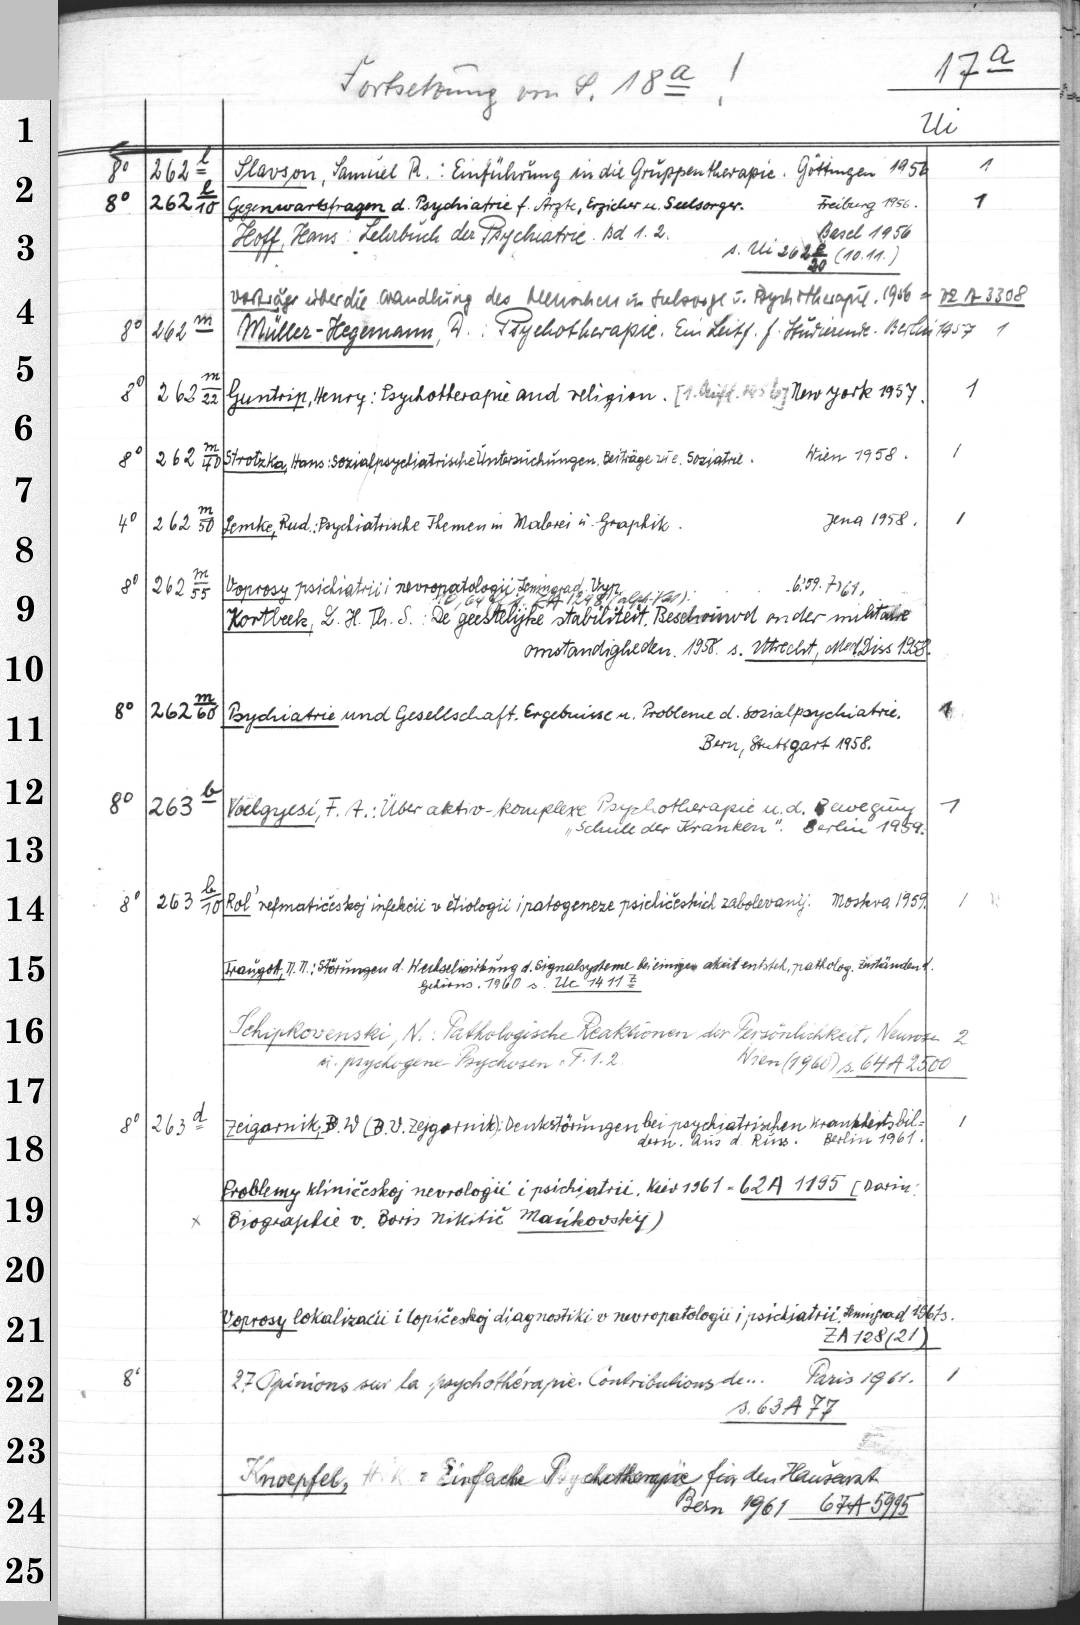 17 a
Fortsetzung von S. 18 a !
Ui
1
8° 262 l Slavson, Samuel R. : Einführung in die Gruppentherapie. Göttingen 1956 1
2
8° 262 l/10 Gegenwartsfragen d. Psychiatrie f. Ärzte, Erzieher u. Seelsorger. Freiburg 1956. 1
Hoff, Hans : Lehrbuch der Psychiatrie. Bd 1. 2. Basel 1956
3
s. Ui 262 l/20 (10.11.)
Vorträge über die Wandlung des Menschen in Seelsorge u. Psychotherapie. 1956 =
4
8° 262 m Müller-Hegemann, D. : Psychotherapie. Ein Leitf. f. Studierende. Berlin 1957 1
5
8° 262 m/22 Guntrip, Henry : Psychotherapie and religion. New York 1957. 1
6
8° 262 m/40 Strotzka, Hans : Sozialpsychiatrische Untersuchungen. Beiträge zu e. Soziatrie. Wien 1958. 1
7
4° 262 m/50 Lemke, Rud. : Psychiatrische Themen in Malerei u. Graphik. Jena 1958. 1
8
8° 262 m/55 Voprosy psichiatrii i nevropatologii. Leningrad. Vyp. 6.59. 7.61.
9
Kortbeek, L. H. Th. S. : De geestelijke stabiliteit. Beschouwd onder militaire
omstandigheden. 1958. s. Utrecht, Med. Diss 1958.
10
8° 262 m/60 Psychiatrie und Gesellschaft. Ergebnisse u. Probleme d. Sozialpsychiatrie. 1
11
Bern, Stuttgart 1958.
12
8° 263 b Voelgyesi, F. A. : Über aktiv-komplexe Psychotherapie u. d. Bewegung 1
"Schule der Kranken". Berlin 1959.
13
8° 263 b/10 Rol' revmatičeskoj infekcii v ėtiologii i patogeneze psichičeskich zabolevanij. Moskva 1959. 1
14
Traugot, N. N. : Störungen d. Wechselwirkung d. Signalsysteme bei einigen akut entsteh. patholog. Zuständen d.
15
Gehirns. 1960 s. Uc 1411 z
Schipkovenski, N. : Pathologische Reaktionen der Persönlichkeit. Neurosen 2
16
u. psychogene Psychosen. T. 1. 2. Wien (1960) s. 64 A 2500
17
8° 263 d Zeigarnik, B. W (B. V. Zejgarnik) : Denkstörungen bei psychiatrischen Krankheitsbil= 1
18
dern. Aus d. Russ. Berlin 1961.
Problemy kliničeskoj nevrologii i psichiatrii. Kiev 1961 = 62 A 1195 [Darin:
19
x Biographie v. Boris Nikitič Mańkovskij)
20
Voprosy lokalizacii i topičeskoj diagnostiki v nevropatologii i psichiatrii. Leningrad 1961 s.
21
ZA 128 (21)
22
8° 27 Opinions sur la psychothérapie. Contributions de... Paris 1961. 1
s. 63 A 77
23
Knoepfel, H. K : Einfache Psychotherapie für den Hausarzt
24
Bern 1961 67 A 5995
25